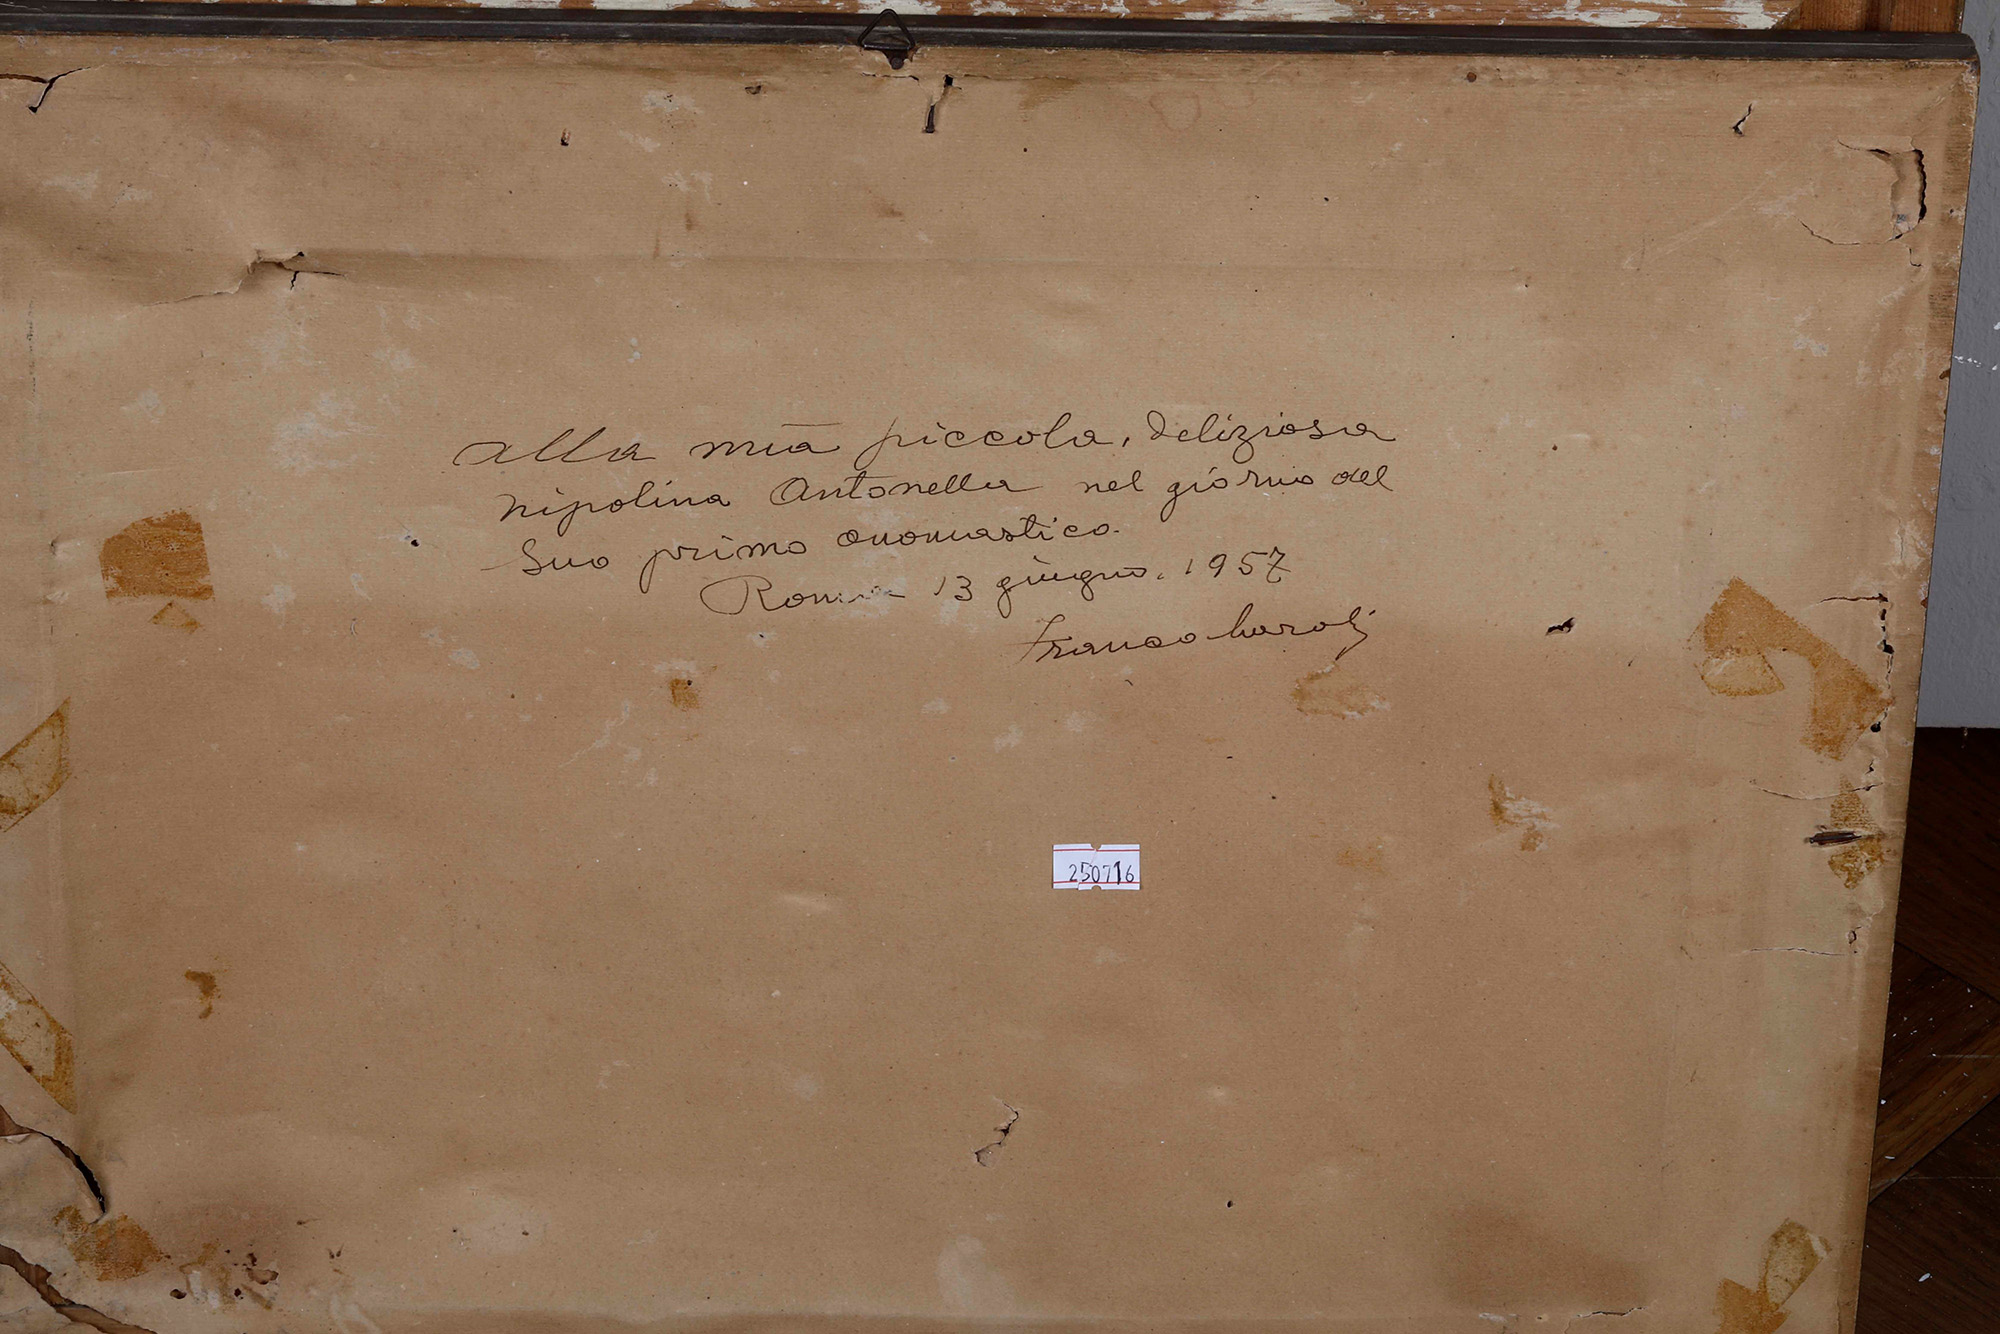 alla mia piccola, deliziosa
nipolina Antonella nel giorno del
suo primo onomastico.
Roma 13 giugno. 1957
Franco
250716